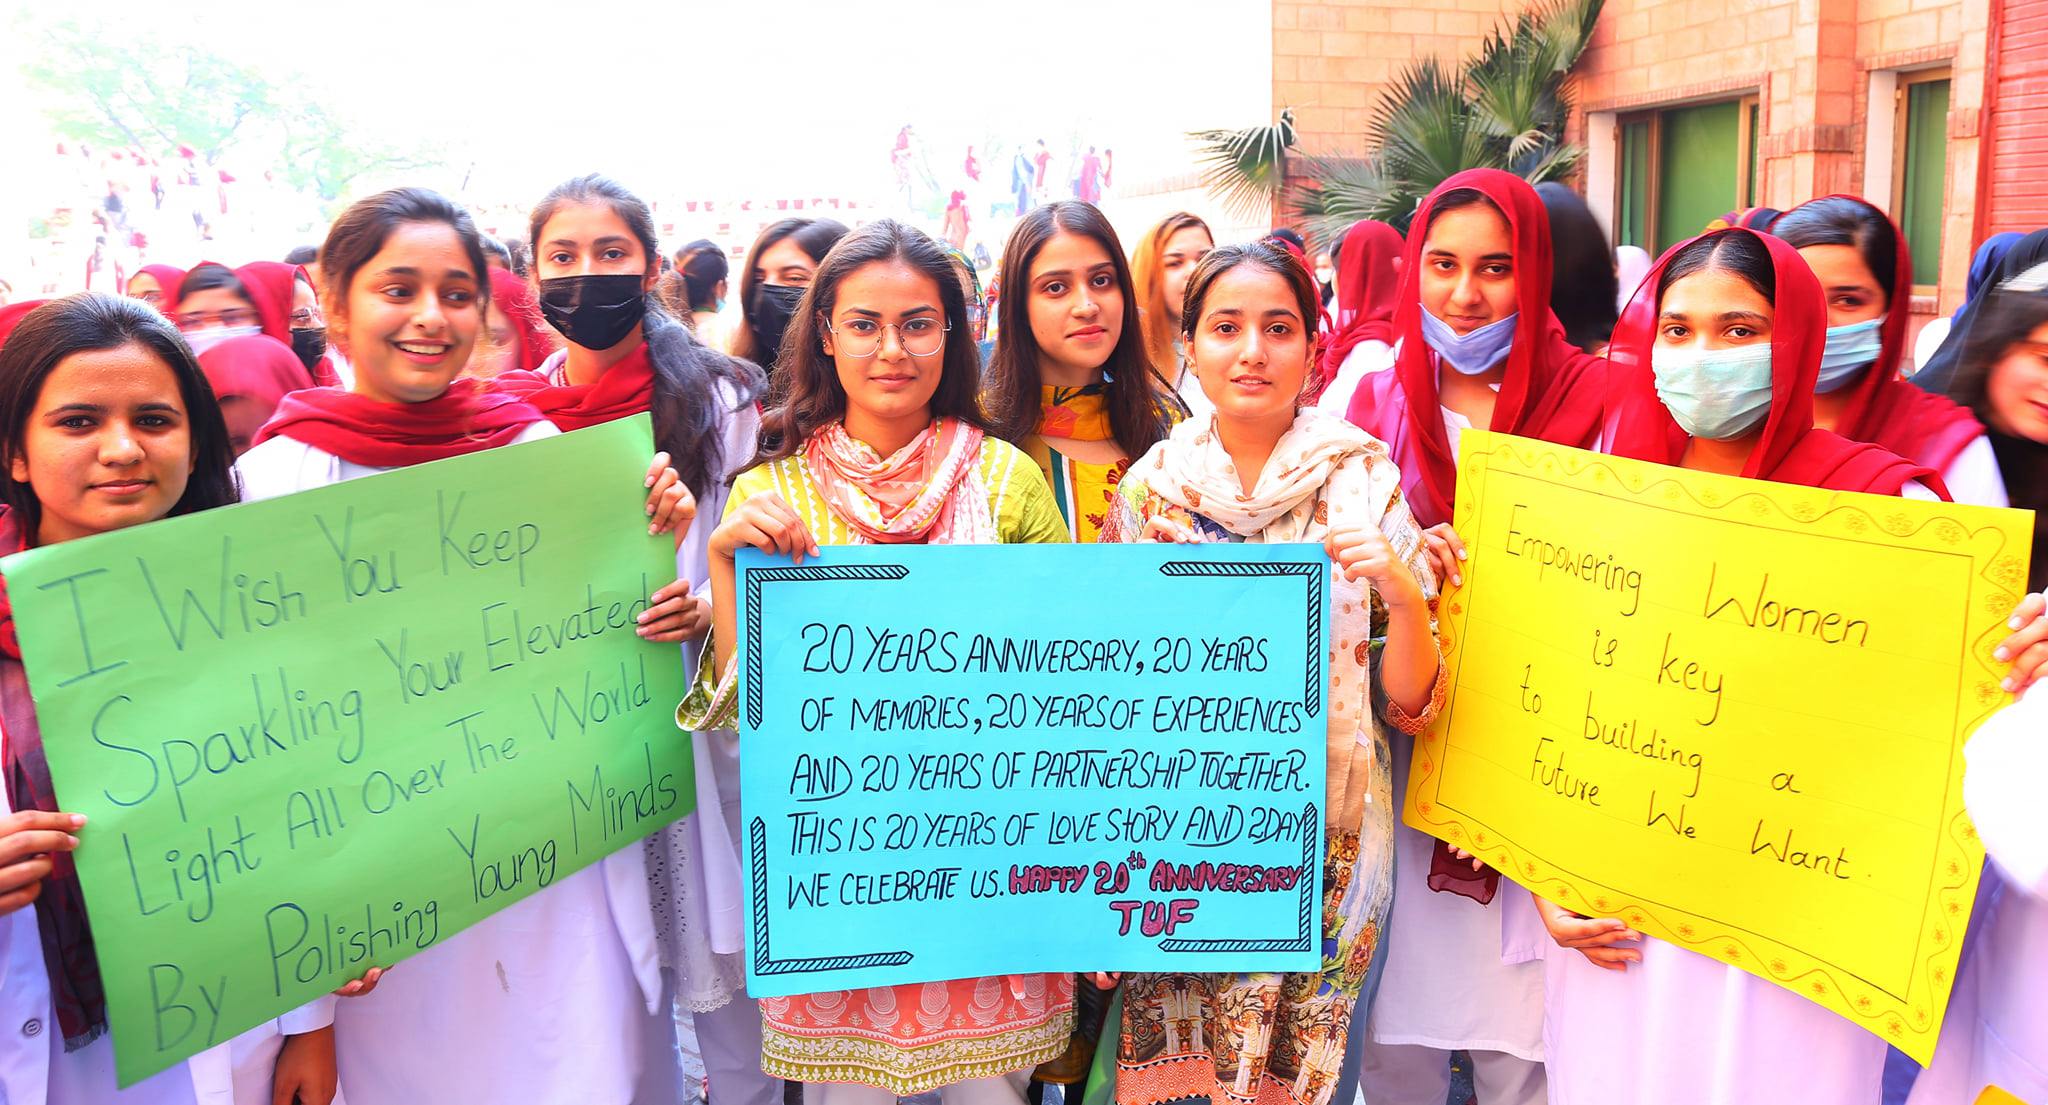 I Wish You Keep
Sparkling Your Elevated
Light All Over The World
By Polishing Young Minds
20 YEARS ANNIVERSARY, 20 YEARS
OF MEMORIES, 20 YEARS OF EXPERIENCES
AND 20 YEARS OF PARTNERSHIP TOGETHER.
THIS IS 20 YEARS OF LOVE STORY AND 2DAY
WE CELEBRATE US. HAPPY 20th ANNIVERSARY
TUF
Empowering Women
is key
to building a
Future We Want.